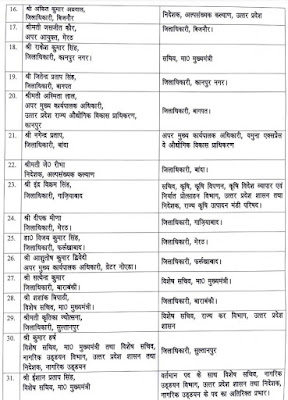 16. श्री अंकित कुमार अग्रवाल, निदेशक, अल्पसंख्यक कल्याण, उत्तर प्रदेश
जिलाधिकारी, बिजनौर
17. श्रीमती जसजीत कौर, जिलाधिकारी, बिजनौर।
अपर आयुक्त, मेरठ
18. श्री राकेश कुमार सिंह, सचिव, मा0 मुख्यमंत्री
जिलाधिकारी, कानपुर नगर।
19. श्री जितेन्द्र प्रताप सिंह, जिलाधिकारी, कानपुर नगर।
जिलाधिकारी, बागपत
20. श्रीमती अस्मिता लाल, जिलाधिकारी, बागपत।
अपर मुख्य कार्यपालक अधिकारी,
उत्तर प्रदेश राज्य औद्योगिक विकास प्राधिकरण,
कानपुर
21. श्री नगेन्द्र प्रताप, अपर मुख्य कार्यपालक अधिकारी, यमुना एक्सप्रेस
जिलाधिकारी, बांदा वे औद्योगिक विकास प्राधिकरण
22. श्रीमती जे० रीभा जिलाधिकारी, बांदा।
निदेशक, अल्पसंख्यक कल्याण
23. श्री इंद्र विक्रम सिंह, सचिव, कृषि, कृषि विपणन, कृषि विदेश व्यापार एवं
जिलाधिकारी, गाज़ियाबाद निर्यात प्रोत्साहन विभाग, उत्तर प्रदेश शासन तथा
निदेशक, राज्य कृषि उत्पादन मंडी परिषद।
24. श्री दीपक मीणा जिलाधिकारी, गाज़ियाबाद।
जिलाधिकारी, मेरठ।
25. डा0 विजय कुमार सिंह, जिलाधिकारी, मेरठ।
जिलाधिकारी, फर्रूखाबाद।
26. श्री आशुतोष कुमार द्विवेदी जिलाधिकारी, फर्रूखाबाद।
अपर मुख्य कार्यपालक अधिकारी, ग्रेटर नोएडा।
27. श्री सत्येन्द्र कुमार विशेष सचिव, मा0 मुख्यमंत्री।
जिलाधिकारी, बाराबंकी।
28. श्री शशांक त्रिपाठी, जिलाधिकारी, बाराबंकी।
विशेष सचिव, मा0 मुख्यमंत्री।
29. श्रीमती कृतिका ज्योत्सना, विशेष सचिव, राज्य कर विभाग, उत्तर प्रदेश
जिलाधिकारी, सुल्तानपुर शासन
30. श्री कुमार हर्ष जिलाधिकारी, सुल्तानपुर
विशेष सचिव, मा0 मुख्यमंत्री तथा विशेष सचिव,
नागरिक उड्डयन विभाग, उत्तर प्रदेश शासन तथा
निदेशक, नागरिक उड्डयन
31. श्री ईशान प्रताप सिंह, वर्तमान पद के साथ विशेष सचिव, नागरिक
विशेष सचिव, मा0 मुख्यमंत्री उड्डयन विभाग, उत्तर प्रदेश शासन तथा निदेशक,
नागरिक उड्डयन के पद का अतिरिक्त प्रभार।